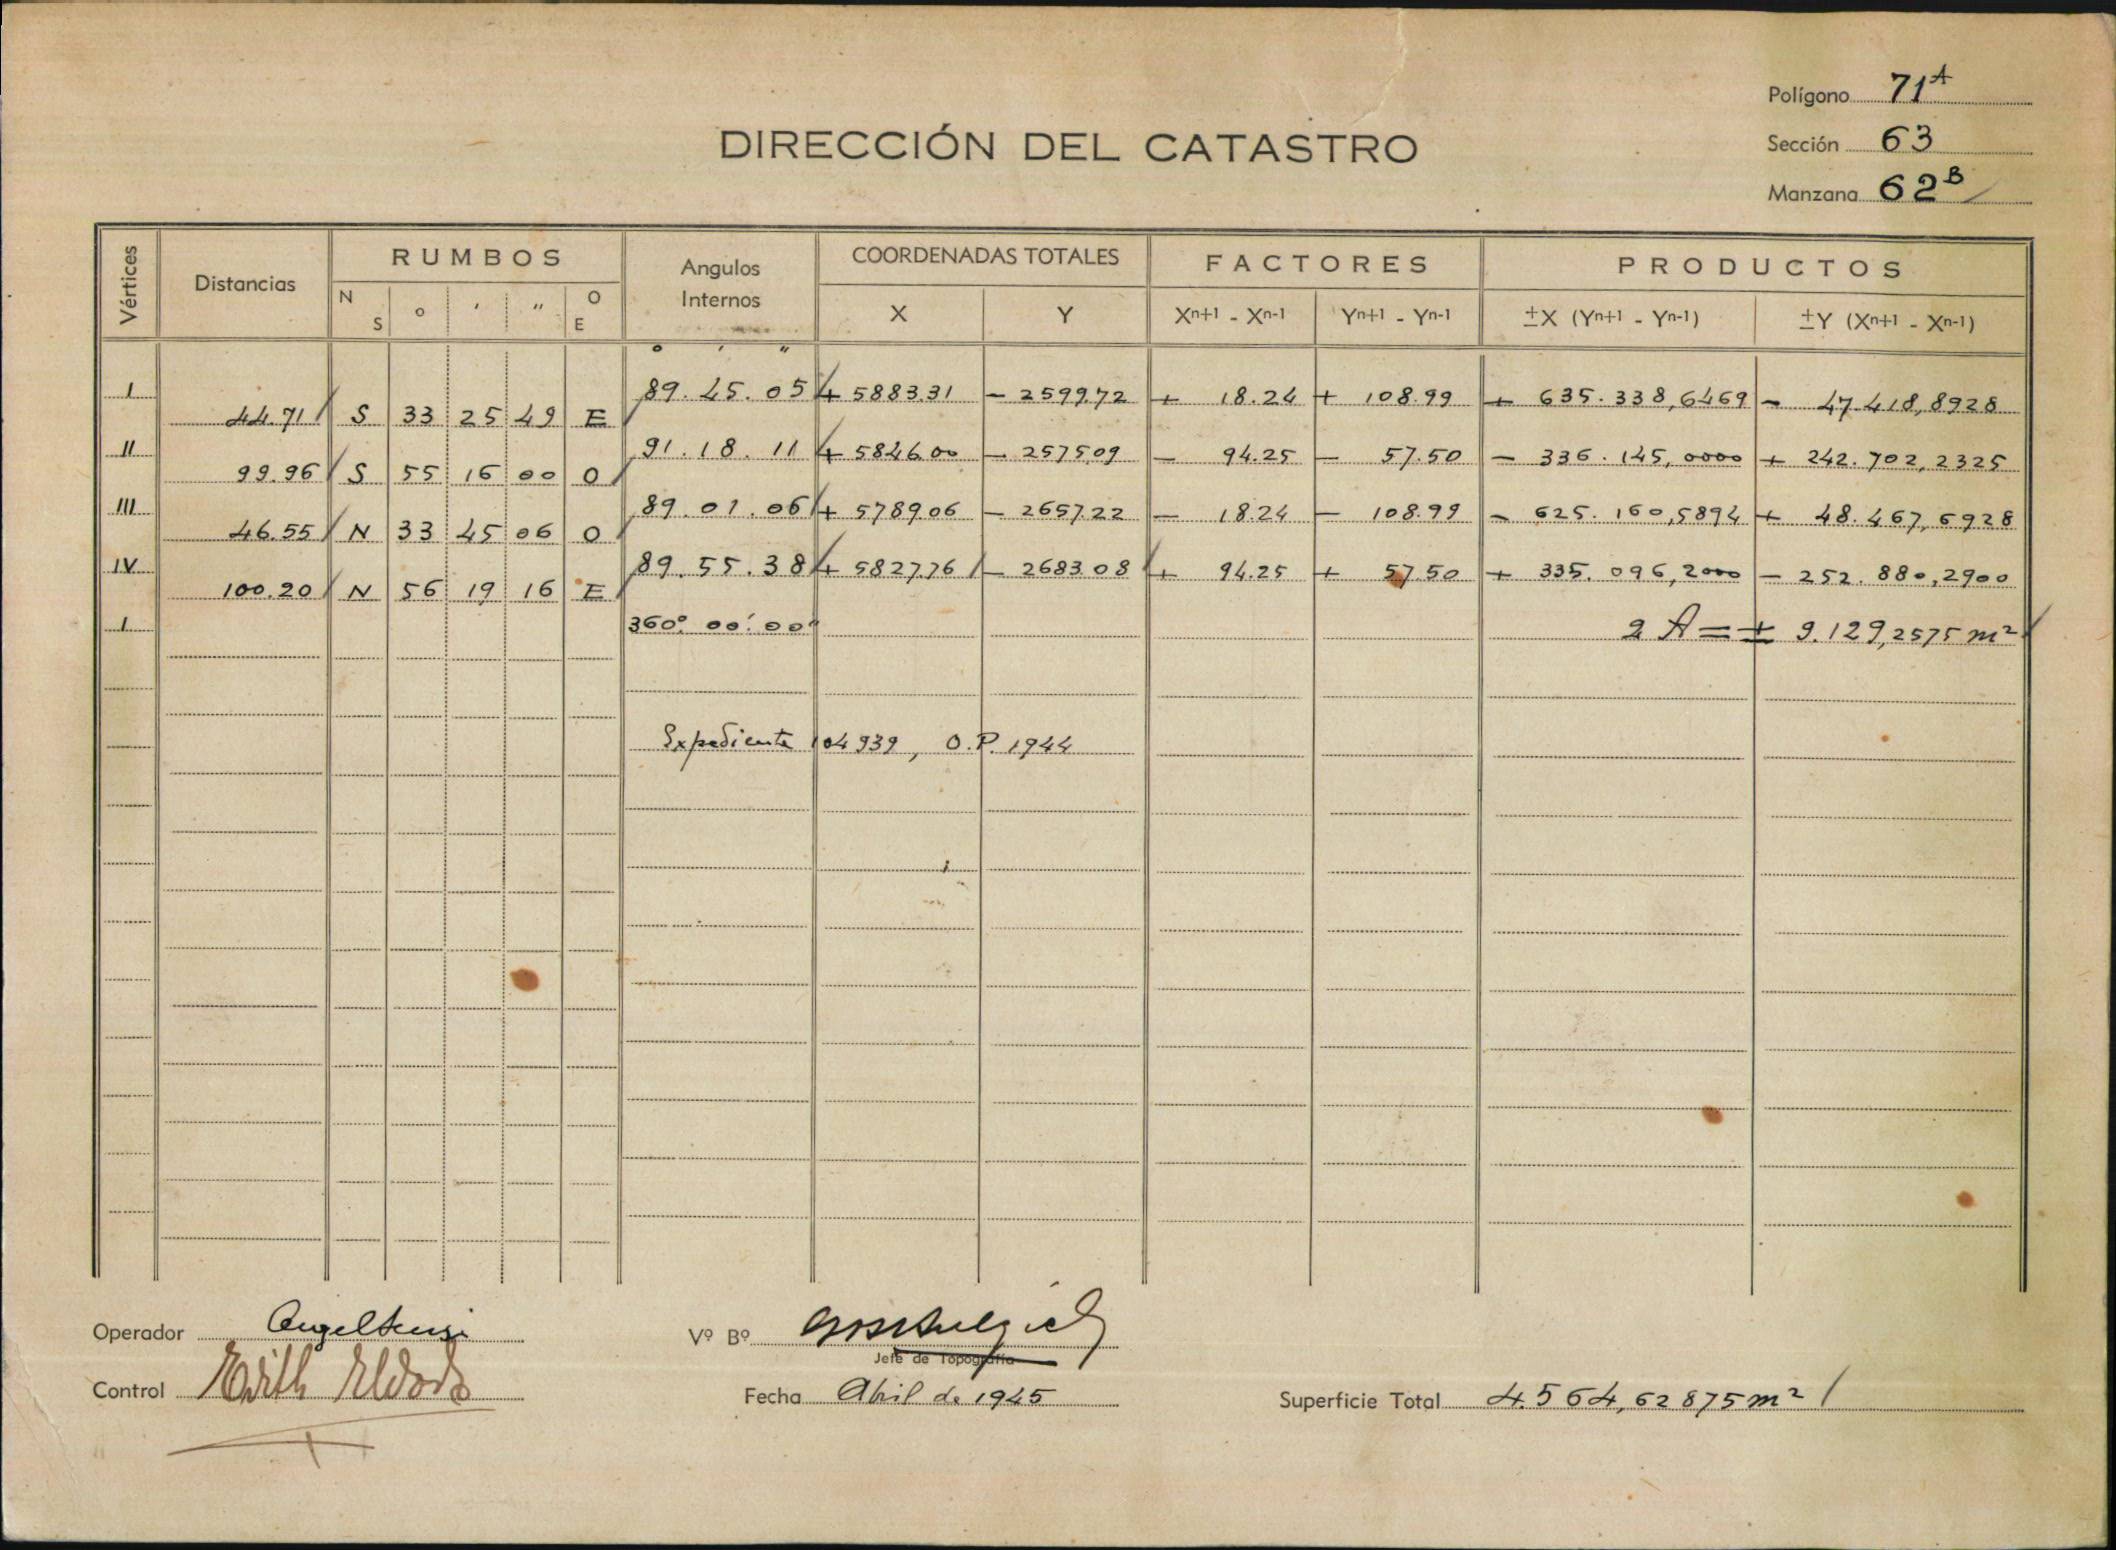 Polígono 71 A
Sección 63
Manzana 62 B
DIRECCIÓN DEL CATASTRO
Vértices Distancias RUMBOS Angulos Internos COORDENADAS TOTALES FACTORES PRODUCTOS
N S ° ' " O E X Y Xn+1 - Xn-1 Yn+1 - Yn-1 ±X (Yn+1 - Yn-1) ±Y (Xn+1 - Xn-1)
° ' "
I 89.45.05 + 5883.31 - 2599.72 + 18.24 + 108.99 + 635.338,6469 - 47.418,8928
44.71 S 33 25 49 E
II 91.18.11 + 5846.00 - 2575.09 - 94.25 - 57.50 - 336.145,0000 + 242.702,2325
99.96 S 55 16 00 O
III 89.01.06 + 5789.06 - 2657.22 - 18.24 - 108.99 - 625.160,5894 + 48.467,6928
46.55 N 33 45 06 O
IV 89.55.38 + 5827.76 - 2683.08 + 94.25 + 57.50 + 335.096,2000 - 252.880,2900
100.20 N 56 19 16 E
I 360° 00' 00" 2 A = ± 9.129,2575 m²
Expediente 104939, O.P. 1944
Operador
Vº Bº
Jefe de Topografía
Control Edith
Fecha Abril de 1945
Superficie Total 4.564,62875 m²